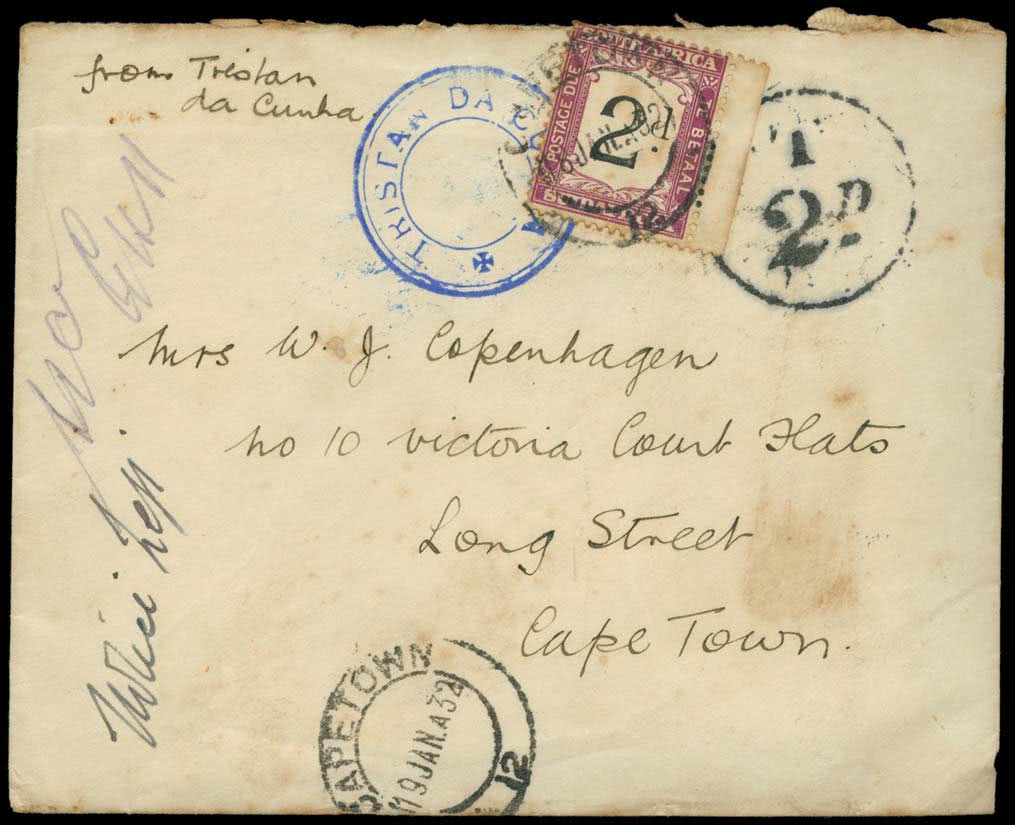 from Tristan
da Cunha
TRISTAN DA
SOUTH AFRICA
POSTAGE DUE
BETAAL
2D.
1
2D.
Mrs W. J. Copenhagen
No 10 Victoria Court Flats
Long Street
Cape Town.
CAPETOWN
19 JAN. A 32
12
12